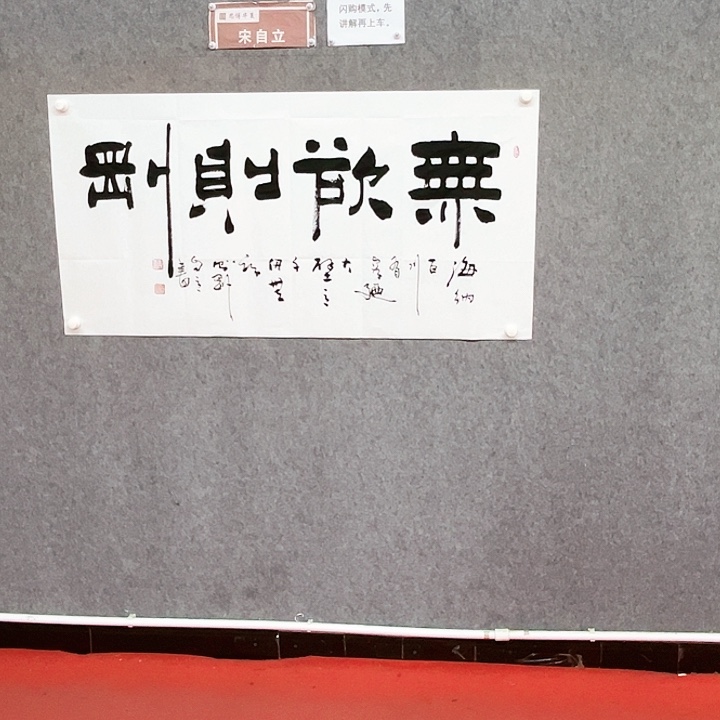 宋自立
闪购模式，先
讲解再上车。
無欲則剛
海納百川有容廼大壁立千仞無欲則剛